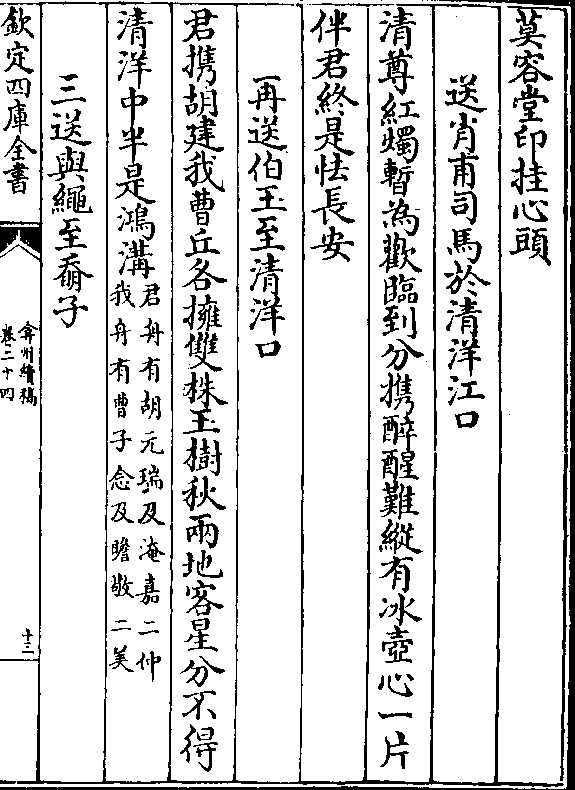 莫容堂印挂心頭
送肖甫司馬於清洋江口
清尊紅燭暫為歡臨到分携醉醒難縱有冰壺心一片
伴君終是怯長安
再送伯玉至清洋口
君携胡建我曹丘各擁雙株玉樹秋兩地客星分不得
清洋中半是鴻溝
君舟有胡元瑞及淹嘉二仲
我舟有曹子念及瞻敬二美
三送與繩至奣子
欽定四庫全書
弇州續稿
卷二十四
十三